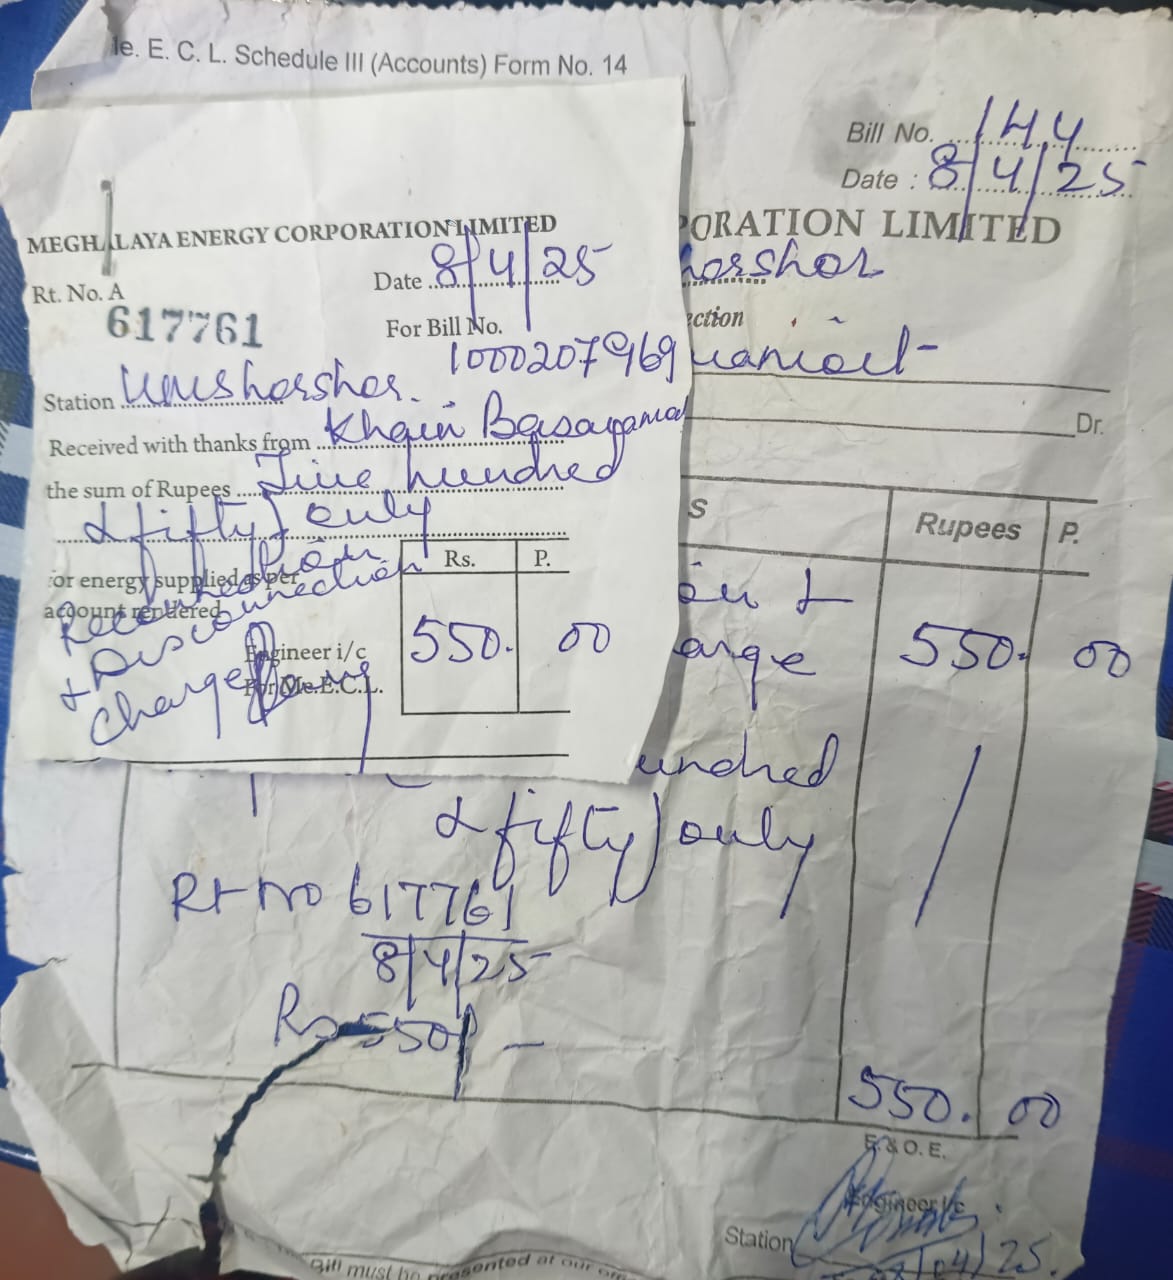 le. E. C. L. Schedule III (Accounts) Form No. 14
Bill No. 144
Date : 8/4/25
PORATION LIMITED
horshor
ection
Dr.
S
Rupees P.
ion &
arge 550. 00
undred
& fifty) only
Rt no 617761
8/4/25
Rs 550/-
550. 00
E. & O. E.
Engineer i/c
Station
08/04/25.
Bill must be presented at our
MEGHALAYA ENERGY CORPORATION LIMITED
Date 8/4/25
Rt. No. A
617761
For Bill No.
1000207969
Station Umshorshor.
Received with thanks from Khain
the sum of Rupees Five hundred
& fifty) only
for energy supplied as per
account rendered
+ Disconnection
charge
Rs. P.
550. 00
Engineer i/c
For Me.E.C.L.